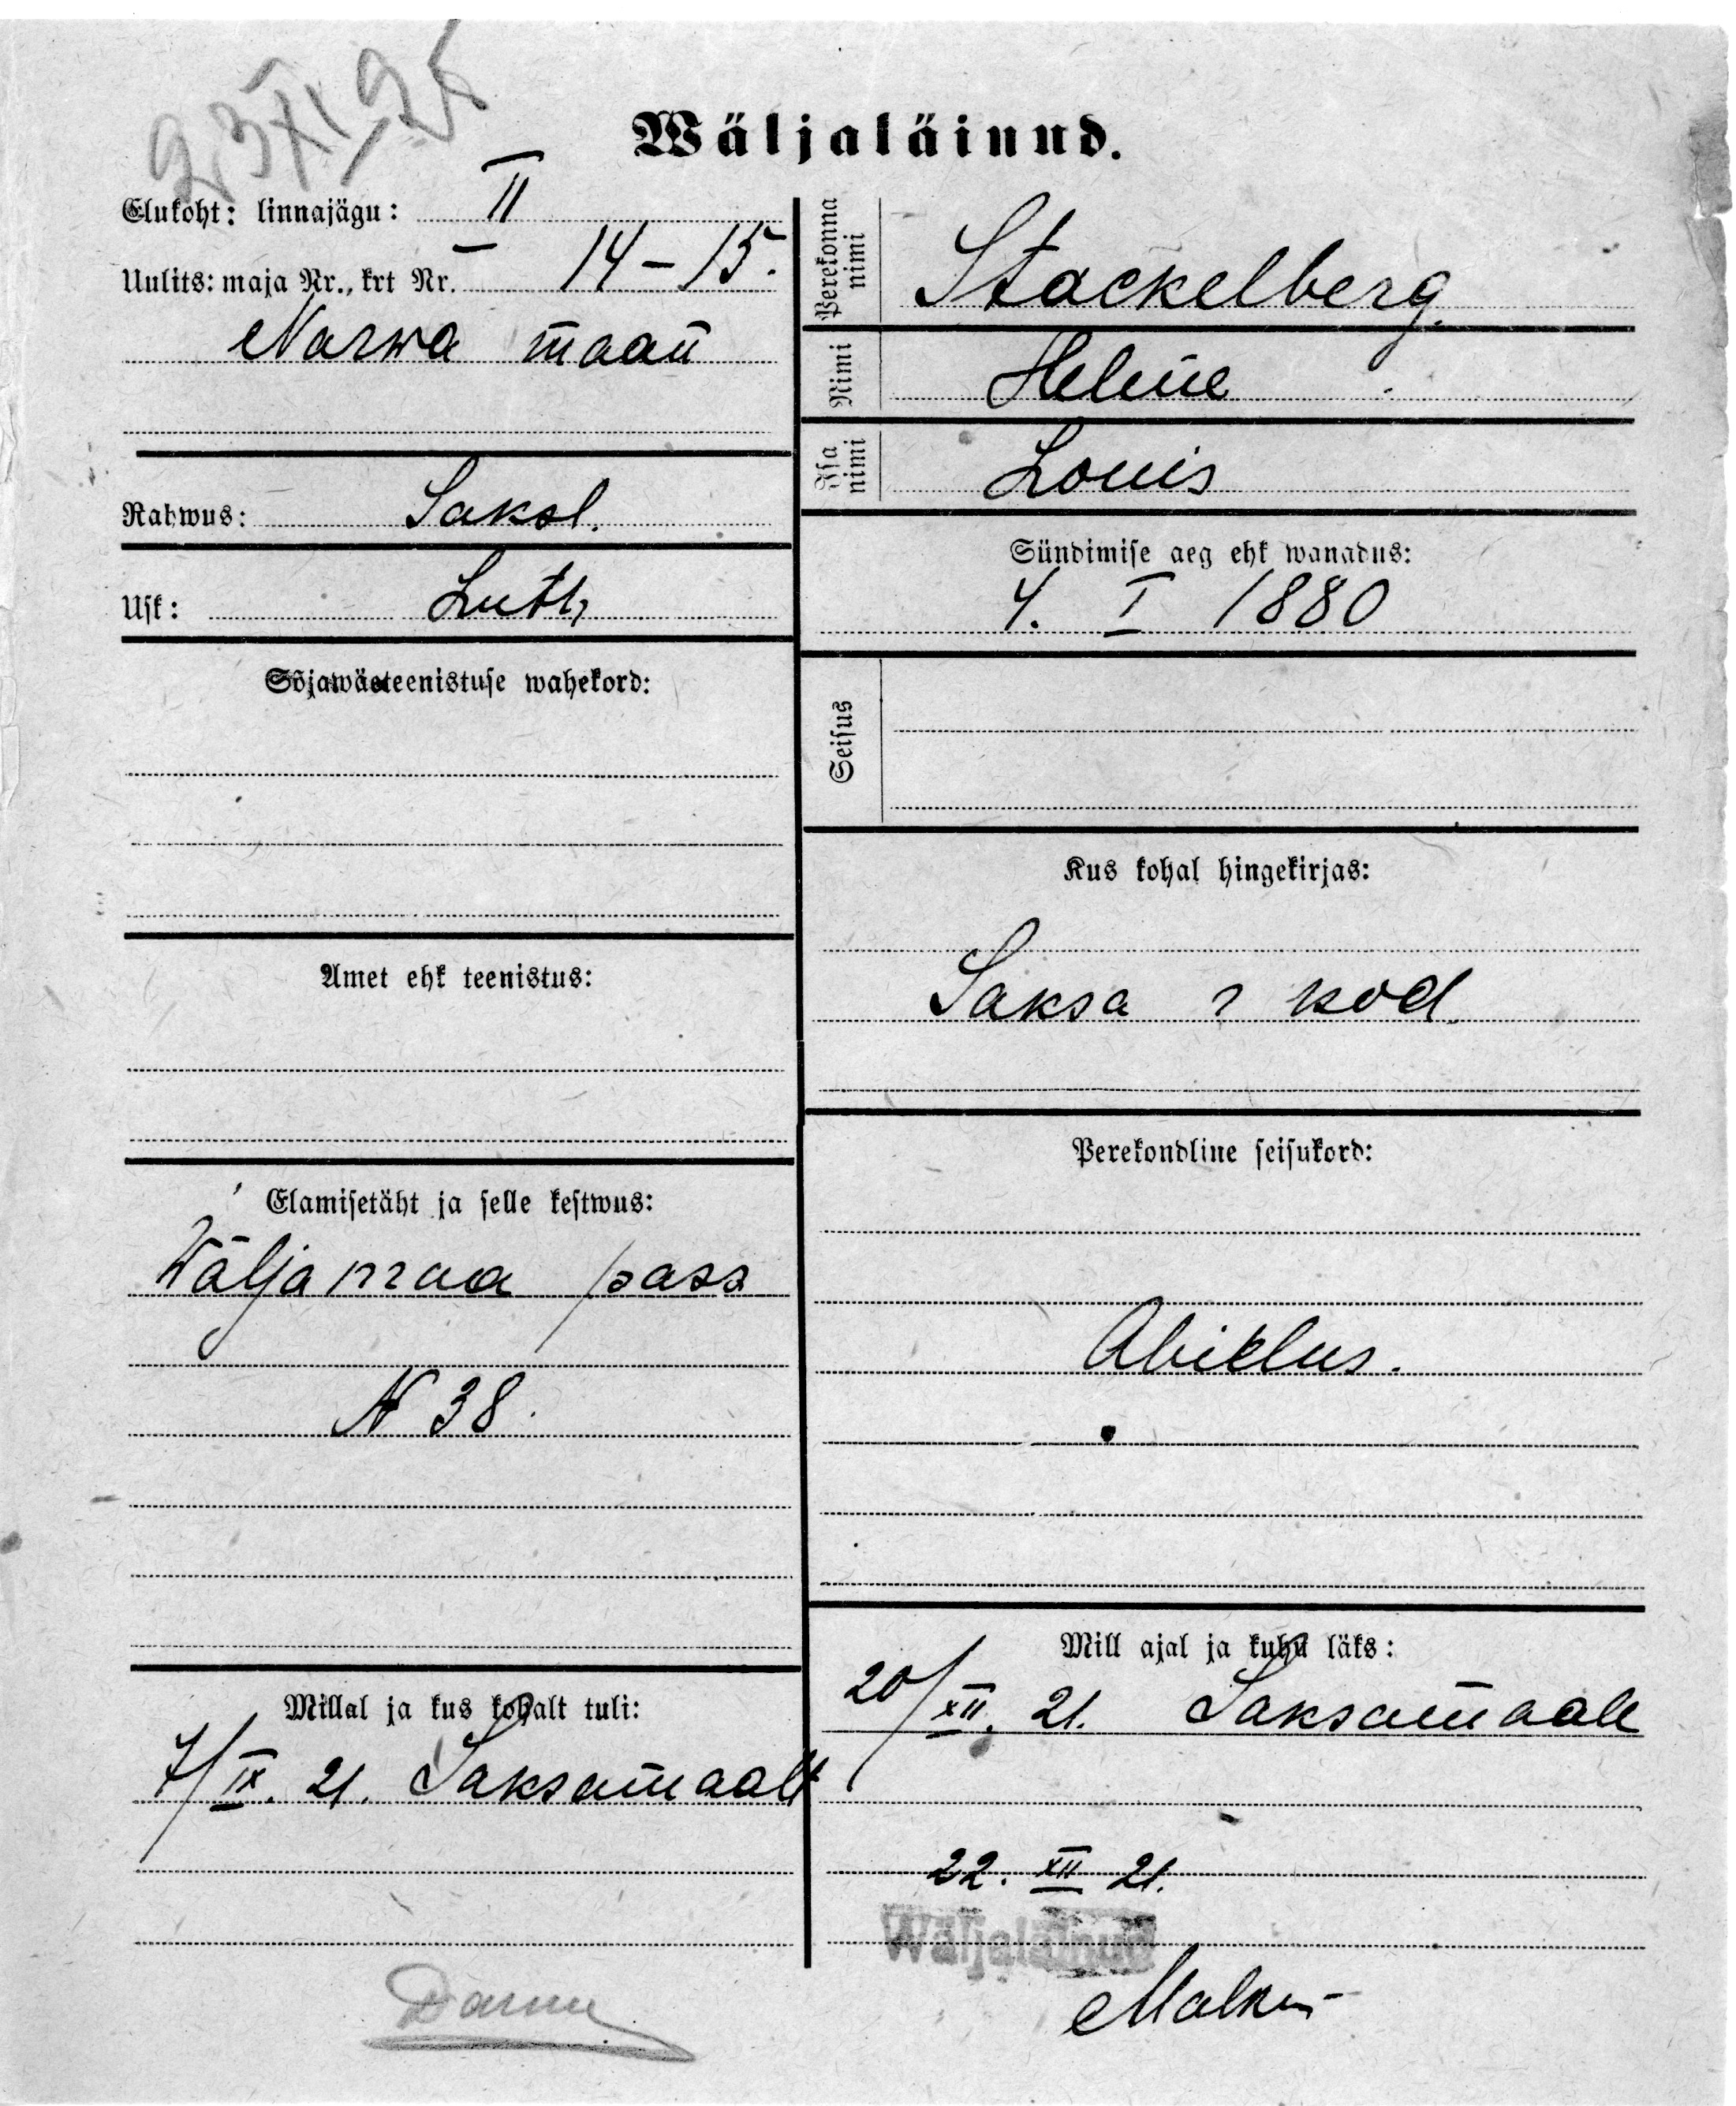 23 XI 26
Wäljaläinud.
Elukoht: linnajägu: II
Uulits: maja Nr., krt Nr. 14–15.
Narwa maan
Rahwus: Saksl.
Usk: Luth
Sõjawäeteenistuse wahekord:
Amet ehk teenistus:
Elamisetäht ja selle kestwus:
Wäljamaa pass
N 38.
Millal ja kus kohalt tuli:
7/IX. 21. Saksamaalt
Perekonna nimi Stackelberg.
Nimi Helene
Isa nimi Louis
Sündimise aeg ehk wanadus:
4. I 1880
Seisus
Kus kohal hingekirjas:
Saksa r kod.
Perekondline seisukord:
Abielus.
Mill ajal ja kuhu läks:
20/XII. 21. Saksamaale
22. XII 21.
Wäljaläinud